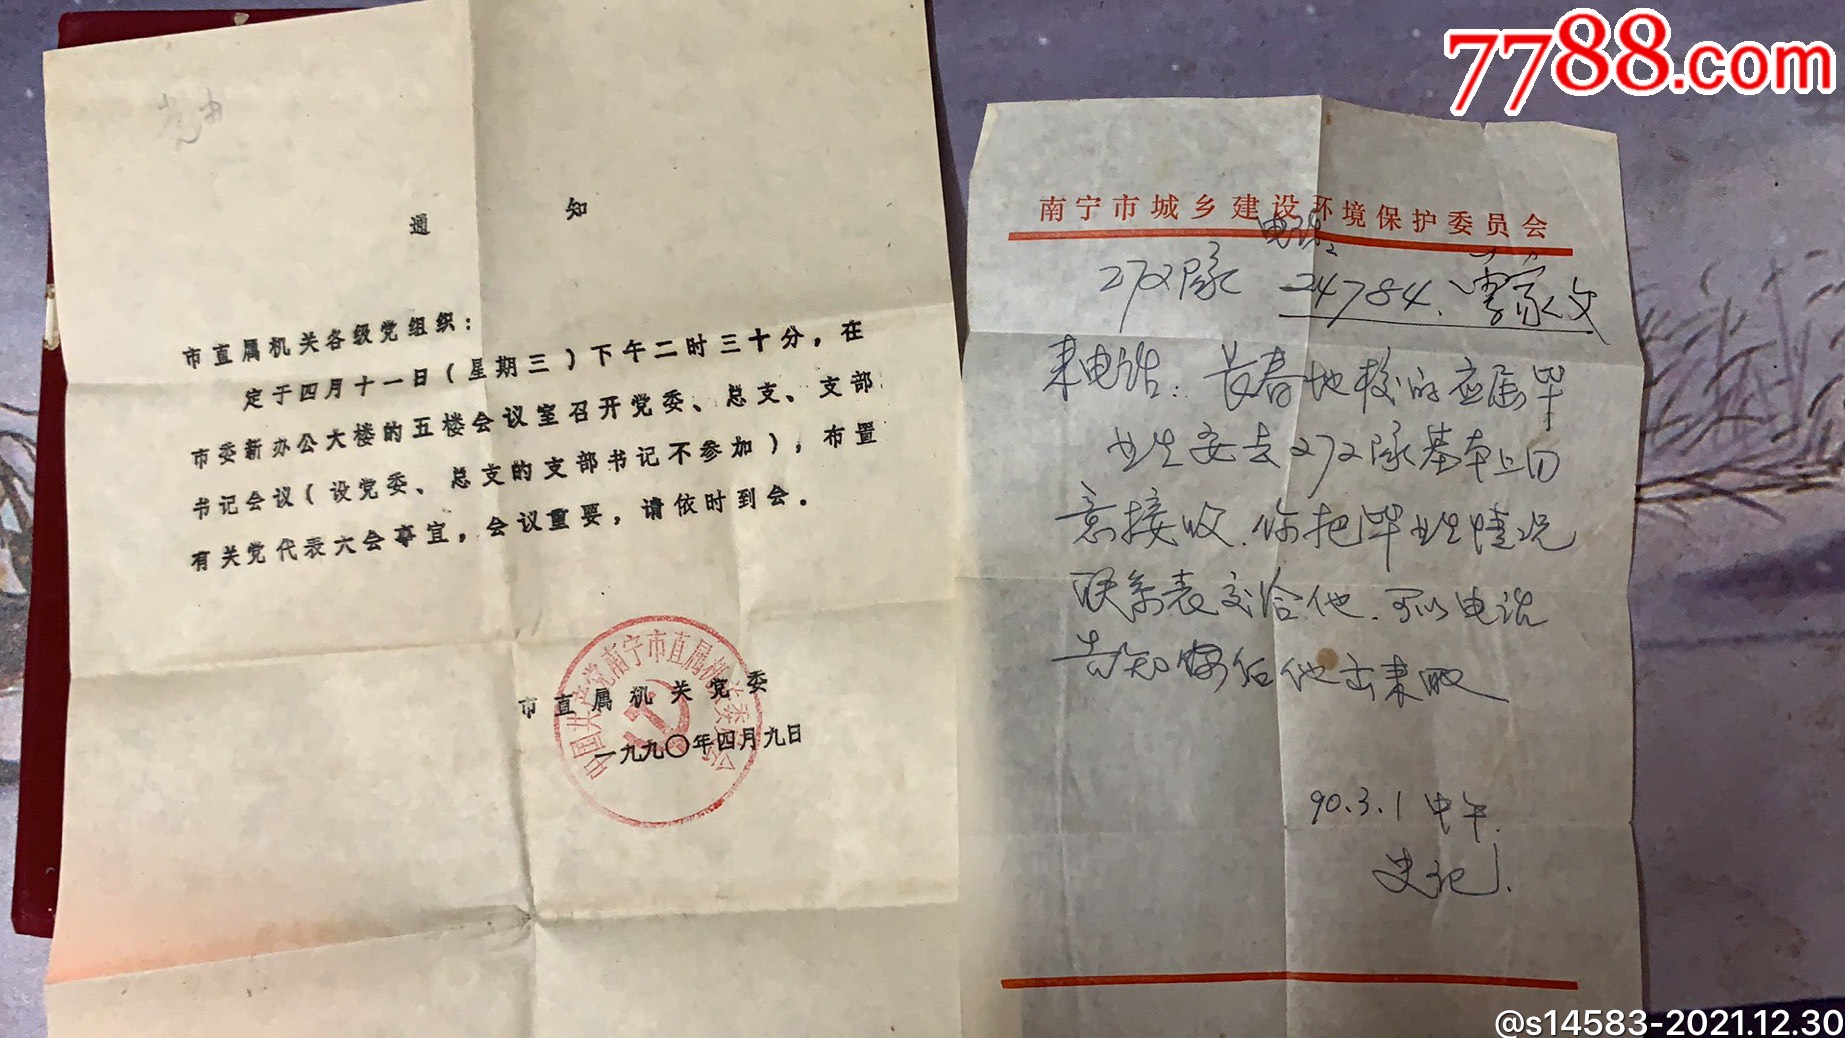 7788.com
通知
市直属机关各级党组织：
定于四月十一日（星期三）下午二时三十分，在
市委新办公大楼的五楼会议室召开党委、总支、支部
书记会议（设党委、总支的支部书记不参加），布置
有关党代表大会事宜，会议重要，请依时到会。
市直属机关党委
一九九〇年四月九日
中国共产党南宁市直属机关委员会
南宁市城乡建设环境保护委员会
电话：
272队 24784.
来电话：长春地校的应届毕
业生要去272队基本上同
意接收.你把毕业生情况
联系表交给他.可以电话
告知
他出来取
90.3.1 中午.
史记.
@s14583-2021.12.30